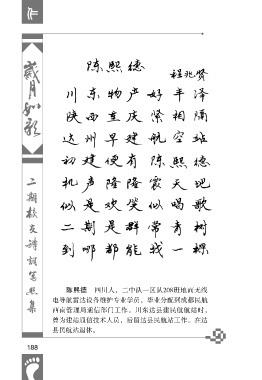 作
岁月如歌
二期校友诗词写照集
陈熙德
程兆贤
川东物产好丰泽
陕西直庆紧相隔
达州早建航空站
初建便有陈熙德
机声隆隆震天吧
似是欢笑似唱歌
二期是群常青树
到哪都能找一棵
陈熙德 四川人，二中队一区队208班地面无线
电导航雷达设备维护专业学员，毕业分配到成都民航
西南管理局通信部门工作。川东达县建民航航站时，
曾为建站通信技术人员，后留达县民航站工作。在达
县民航站退休。
188